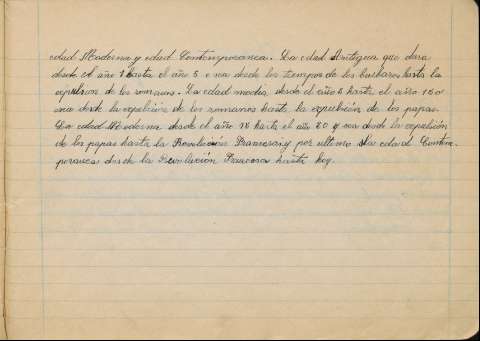 edad Moderna y edad Contemporanea. La edad Antigua que dura
desde el año 1 hasta el año 5 o sea desde los tiempos de los barbaros hasta la
expulsion de los romanos. La edad media, desde el año 5 hasta el año 15 o
sea desde la expulsión de los romanos hasta la expulsión de los papas.
La edad Moderna desde el año 15 hasta el año 20 y sea desde la expulsión
de los papas hasta la Revolución Francesa y por ultimo la edad Contem-
poranea desde la Revolución Francesa hasta hoy.